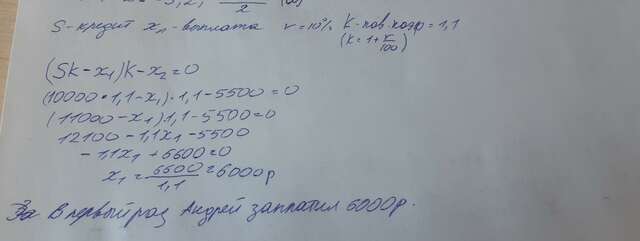 S-кредит x₁-выплата r=10% k-пов.коэф=1,1
(k=1+r/100)
(Sk-x₁)k-x₂=0
(10000·1,1-x₁)·1,1-5500=0
(11000-x₁)1,1-5500=0
12100-1,1x₁-5500
-1,1x₁+6600=0
x₁=6600/1,1=6000р
В первый раз Андрей заплатил 6000р.